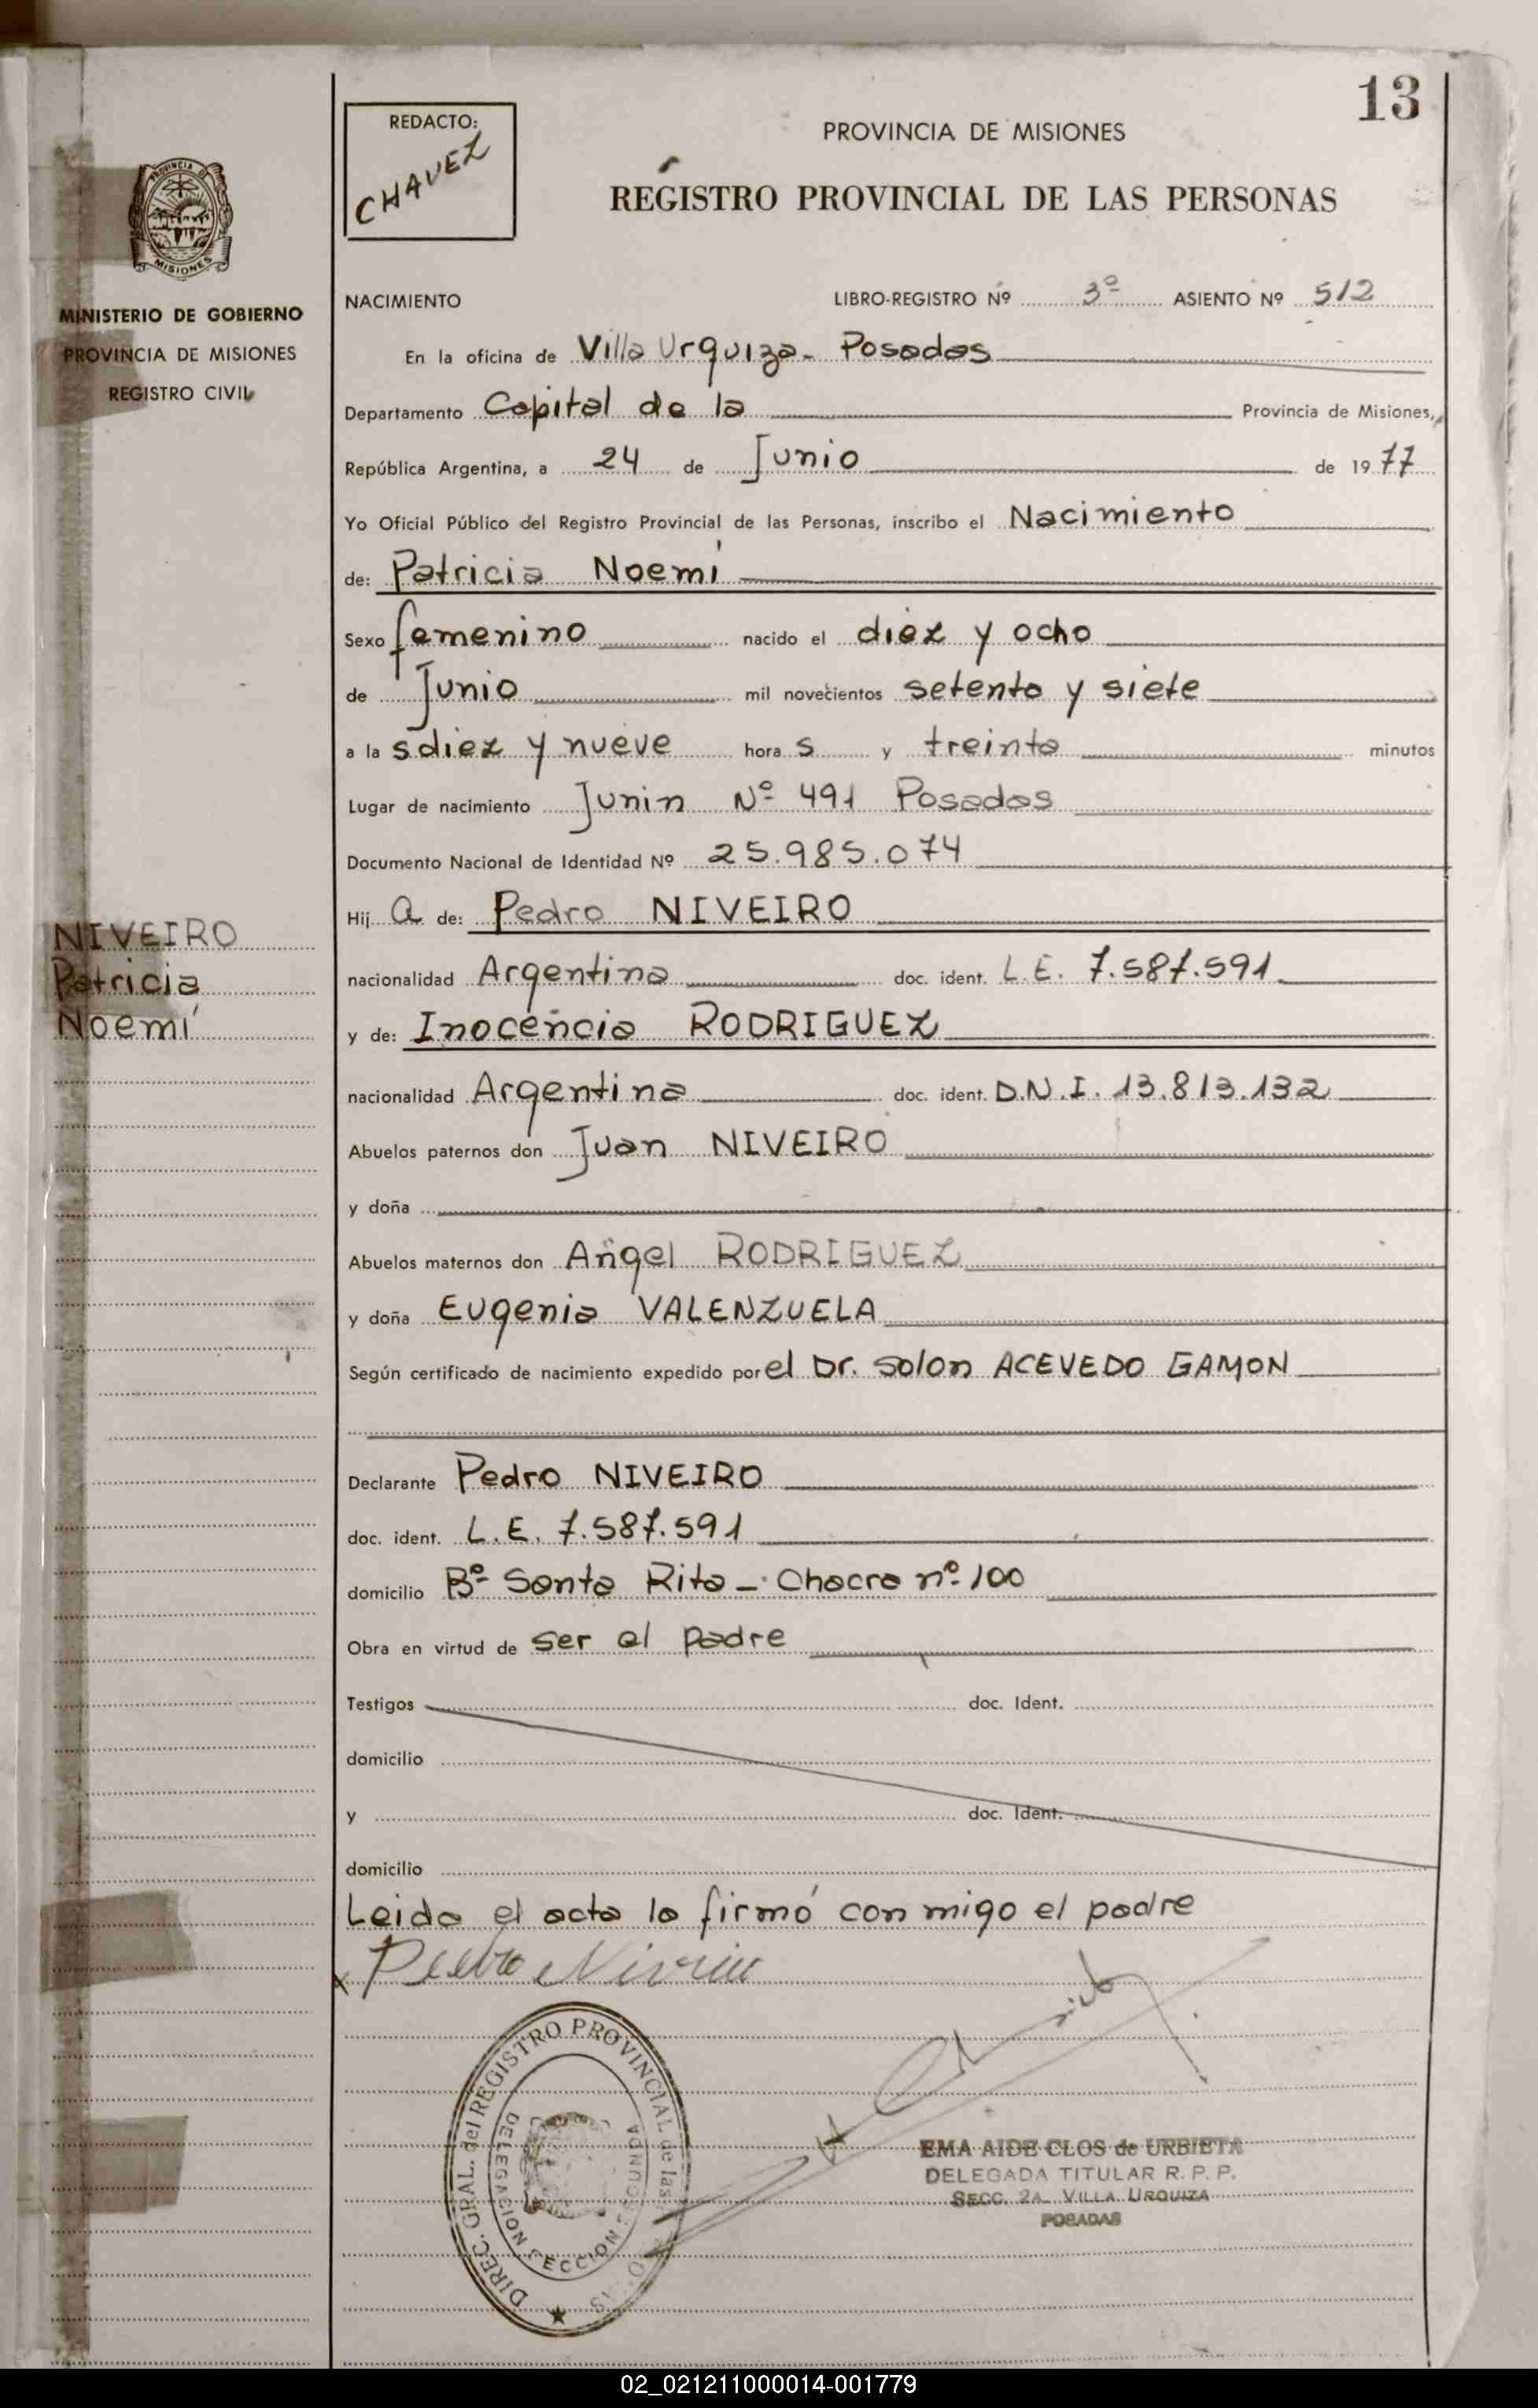 13
REDACTO:
CHAVEZ
PROVINCIA DE MISIONES
REGISTRO PROVINCIAL DE LAS PERSONAS
PROVINCIA DE
MISIONES
MINISTERIO DE GOBIERNO
PROVINCIA DE MISIONES
REGISTRO CIVIL
NACIMIENTO LIBRO-REGISTRO Nº 3º ASIENTO Nº 512
En la oficina de Villa Urquiza - Posadas
Departamento Capital de la Provincia de Misiones,
República Argentina, a 24 de Junio de 1977
Yo Oficial Público del Registro Provincial de las Personas, inscribo el Nacimiento
de: Patricia Noemí
Sexo femenino nacido el diez y ocho
de Junio mil novecientos setenta y siete
a la s diez y nueve hora s y treinta minutos
Lugar de nacimiento Junin Nº 491 Posadas
Documento Nacional de Identidad Nº 25.985.074
Hij a de: Pedro NIVEIRO
NIVEIRO
Patricia
Noemí
nacionalidad Argentina doc. ident. L.E. 7.587.591
y de: Inocencia RODRIGUEZ
nacionalidad Argentina doc. ident. D.N.I. 13.813.132
Abuelos paternos don Juan NIVEIRO
y doña
Abuelos maternos don Angel RODRIGUEZ
y doña Eugenia VALENZUELA
Según certificado de nacimiento expedido por el Dr. Solon ACEVEDO GAMON
Declarante Pedro NIVEIRO
doc. ident. L.E. 7.587.591
domicilio Bº Santa Rita - Chacra nº 100
Obra en virtud de ser el padre
Testigos doc. Ident.
domicilio
y doc. Ident.
domicilio
Leida el acta la firmó con migo el padre
x Pedro Niveiro
DIREC. GRAL. del REGISTRO PROVINCIAL de las
DELEGACION SECCION SEGUNDA
EMA AIDE CLOS de URBIETA
DELEGADA TITULAR R. P. P.
SECC. 2A VILLA URQUIZA
POSADAS
02_021211000014-001779